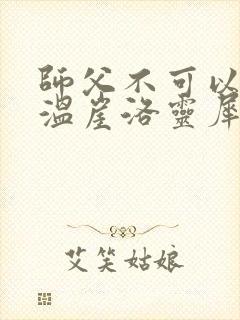 師父不可以
溫崖洛靈犀
艾笑姑娘